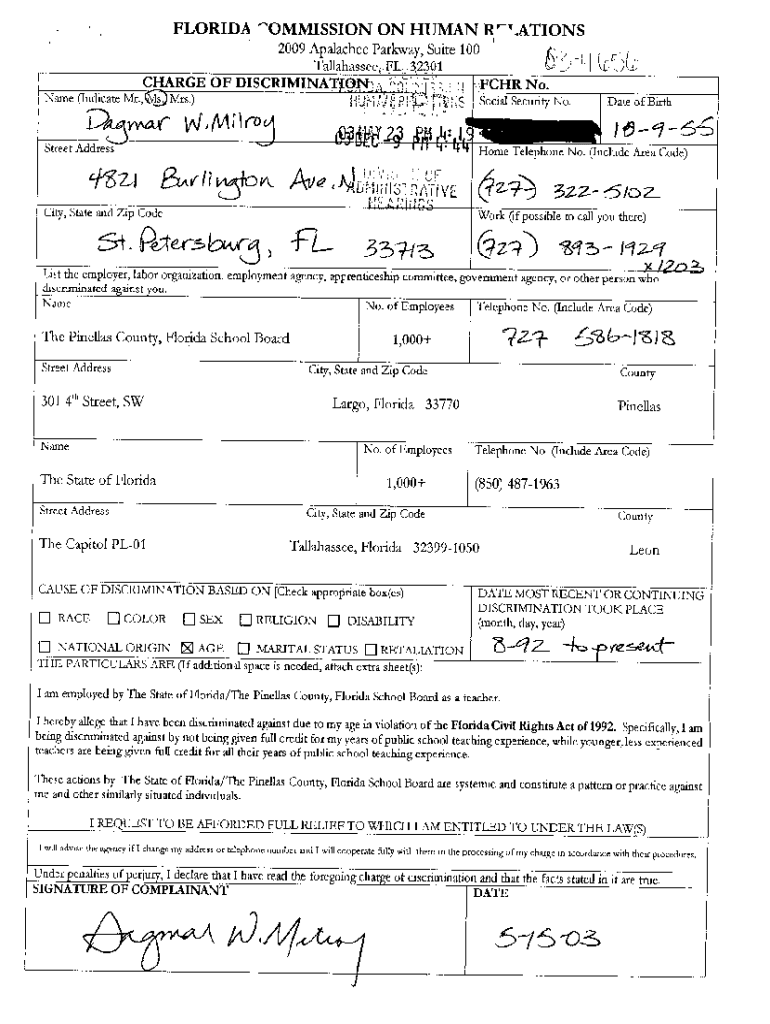 FLORIDA COMMISSION ON HUMAN RELATIONS
2009 Apalachee Parkway, Suite 100
Tallahassee, FL 32301
03-4656
CHARGE OF DISCRIMINATION
FCHR No.
Name (Indicate Mr., Ms., Mrs.)
Social Security No.
Date of Birth
Dagmar W. Milroy
10-9-55
03 MAY 23 PM 4:19
DEC 9 PM 4:44
Street Address
Home Telephone No. (Include Area Code)
4821 Burlington Ave. N
DIVISION OF
ADMINISTRATIVE
HEARINGS
(727) 322-5102
City, State and Zip Code
Work (if possible to call you there)
St. Petersburg, FL 33713
(727) 893-1929
x1203
List the employer, labor organization, employment agency, apprenticeship committee, government agency, or other person who
discriminated against you.
Name
No. of Employees
Telephone No. (Include Area Code)
The Pinellas County, Florida School Board
1,000+
727 586-1818
Street Address
City, State and Zip Code
County
301 4th Street, SW
Largo, Florida 33770
Pinellas
Name
No. of Employees
Telephone No. (Include Area Code)
The State of Florida
1,000+
(850) 487-1963
Street Address
City, State and Zip Code
County
The Capitol PL-01
Tallahassee, Florida 32399-1050
Leon
CAUSE OF DISCRIMINATION BASED ON [Check appropriate box(es)
DATE MOST RECENT OR CONTINUING
DISCRIMINATION TOOK PLACE
(month, day, year)
☐ RACE ☐ COLOR ☐ SEX ☐ RELIGION ☐ DISABILITY
☐ NATIONAL ORIGIN ☒ AGE ☐ MARITAL STATUS ☐ RETALIATION
8-92 to present
THE PARTICULARS ARE (If additional space is needed, attach extra sheet(s):
I am employed by The State of Florida/The Pinellas County, Florida School Board as a teacher.
I hereby allege that I have been discriminated against due to my age in violation of the Florida Civil Rights Act of 1992. Specifically, I am
being discriminated against by not being given full credit for my years of public school teaching experience, while younger, less experienced
teachers are being given full credit for all their years of public school teaching experience.
These actions by The State of Florida/The Pinellas County, Florida School Board are systemic and constitute a pattern or practice against
me and other similarly situated individuals.
I REQUEST TO BE AFFORDED FULL RELIEF TO WHICH I AM ENTITLED TO UNDER THE LAW(S)
I will advise the agency if I change my address or telephone number and I will cooperate fully with them in the processing of my charge in accordance with their procedures.
Under penalties of perjury, I declare that I have read the foregoing charge of discrimination and that the facts stated in it are true.
SIGNATURE OF COMPLAINANT
DATE
Dagmar W. Milroy
5-15-03